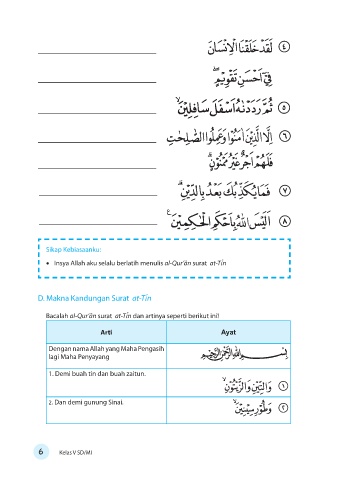 لَقَدْ خَلَقْنَا الْاِنْسَانَ ٤
فِيْٓ اَحْسَنِ تَقْوِيْمٍۖ
ثُمَّ رَدَدْنٰهُ اَسْفَلَ سَافِلِيْنَۙ ٥
اِلَّا الَّذِيْنَ اٰمَنُوْا وَعَمِلُوا الصّٰلِحٰتِ ٦
فَلَهُمْ اَجْرٌ غَيْرُ مَمْنُوْنٍۗ
فَمَا يُكَذِّبُكَ بَعْدُ بِالدِّيْنِۗ ٧
اَلَيْسَ اللّٰهُ بِاَحْكَمِ الْحٰكِمِيْنَࣖ ٨
Sikap Kebiasaanku:
• Insya Allah aku selalu berlatih menulis al-Qur'ān surat at-Tīn
D. Makna Kandungan Surat at-Tīn
Bacalah al-Qur'ān surat at-Tīn dan artinya seperti berikut ini!
Arti Ayat
Dengan nama Allah yang Maha Pengasih
lagi Maha Penyayang
بِسْمِ اللّٰهِ الرَّحْمٰنِ الرَّحِيْمِ
1. Demi buah tin dan buah zaitun.
وَالتِّيْنِ وَالزَّيْتُوْنِۙ ١
2. Dan demi gunung Sinai.
وَطُوْرِ سِيْنِيْنَۙ ٢
6 Kelas V SD/MI